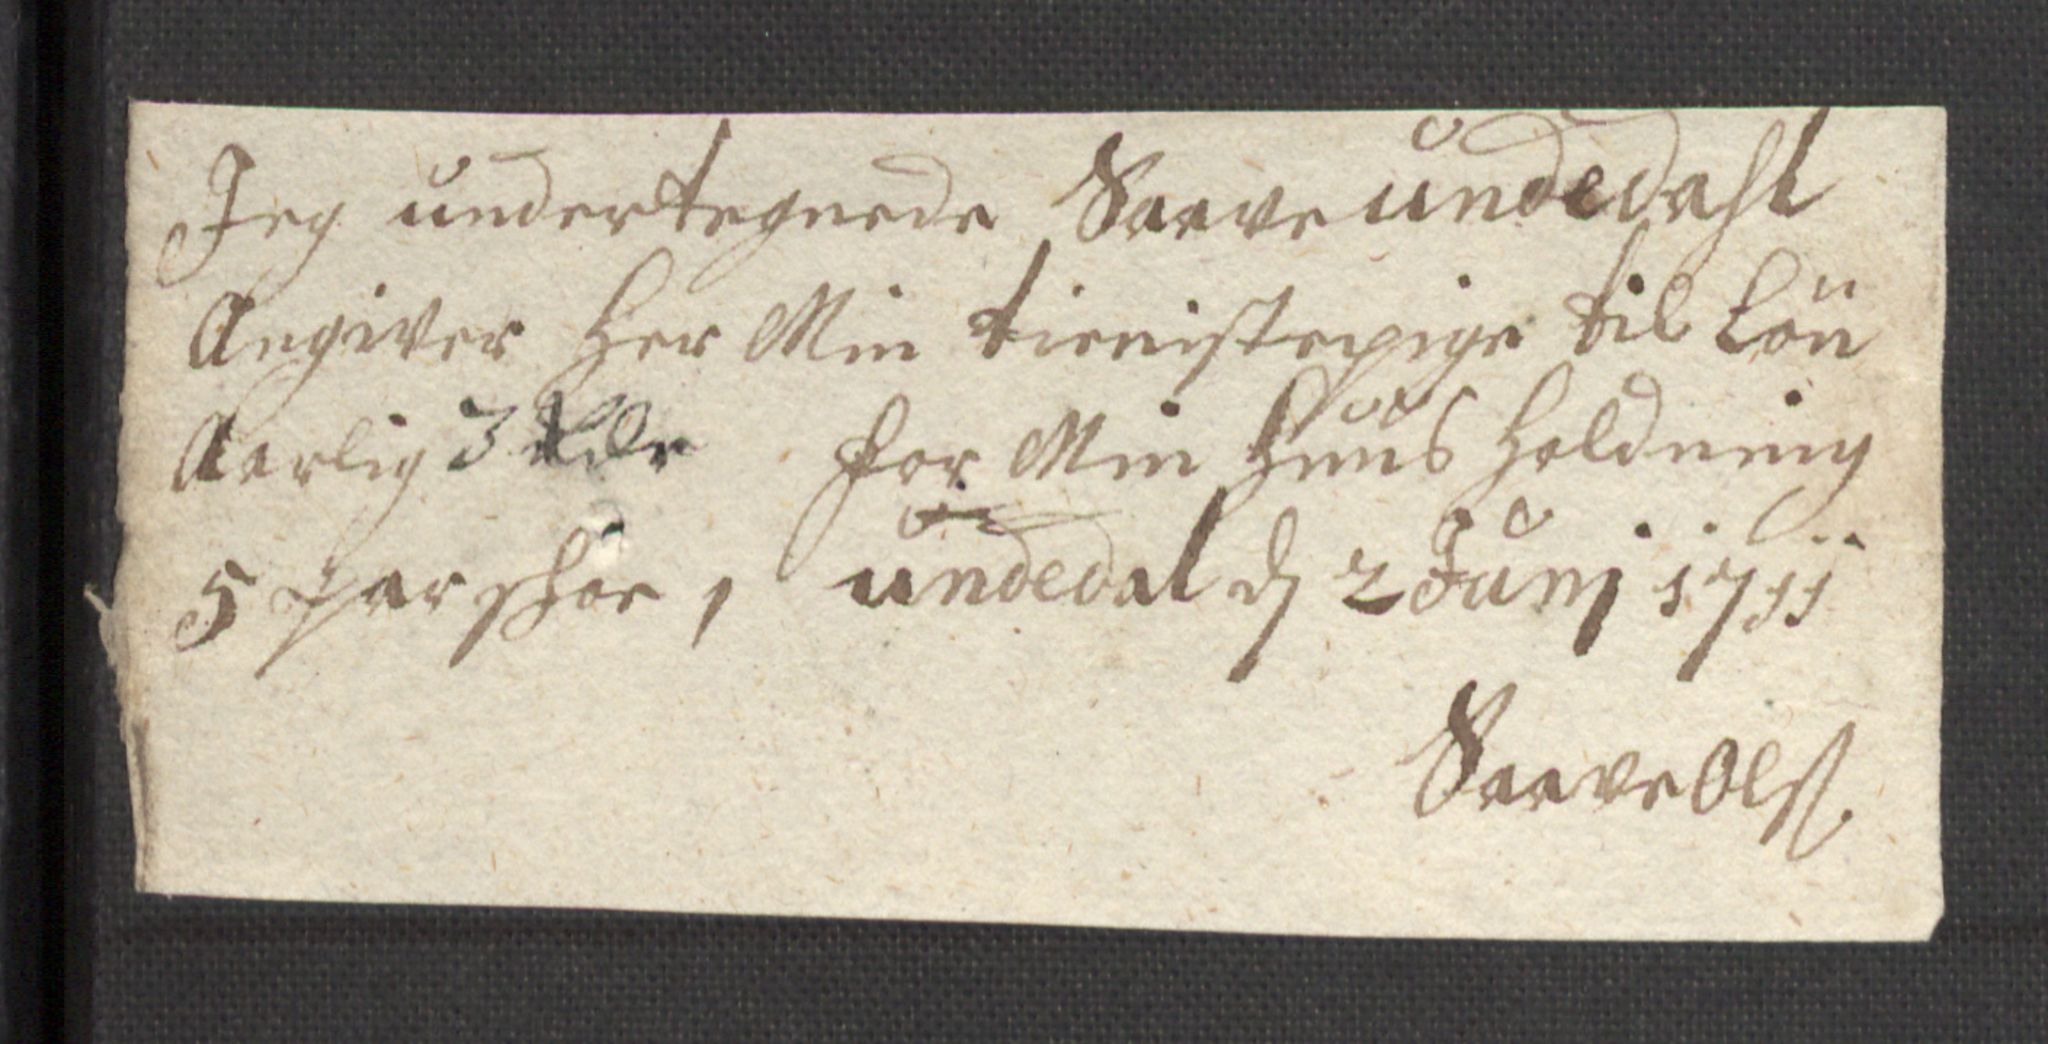 Jeg undertegnede Saave undedahl
Angiver Her Min tienistepige til Lön
Aarlig 3 Rdr for Min Huus Holdning
5 par schoe, undedal d 2 Junj 1711
Saave Olss.